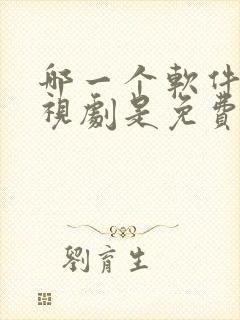 哪一个軟件
視劇是免費
劉育生